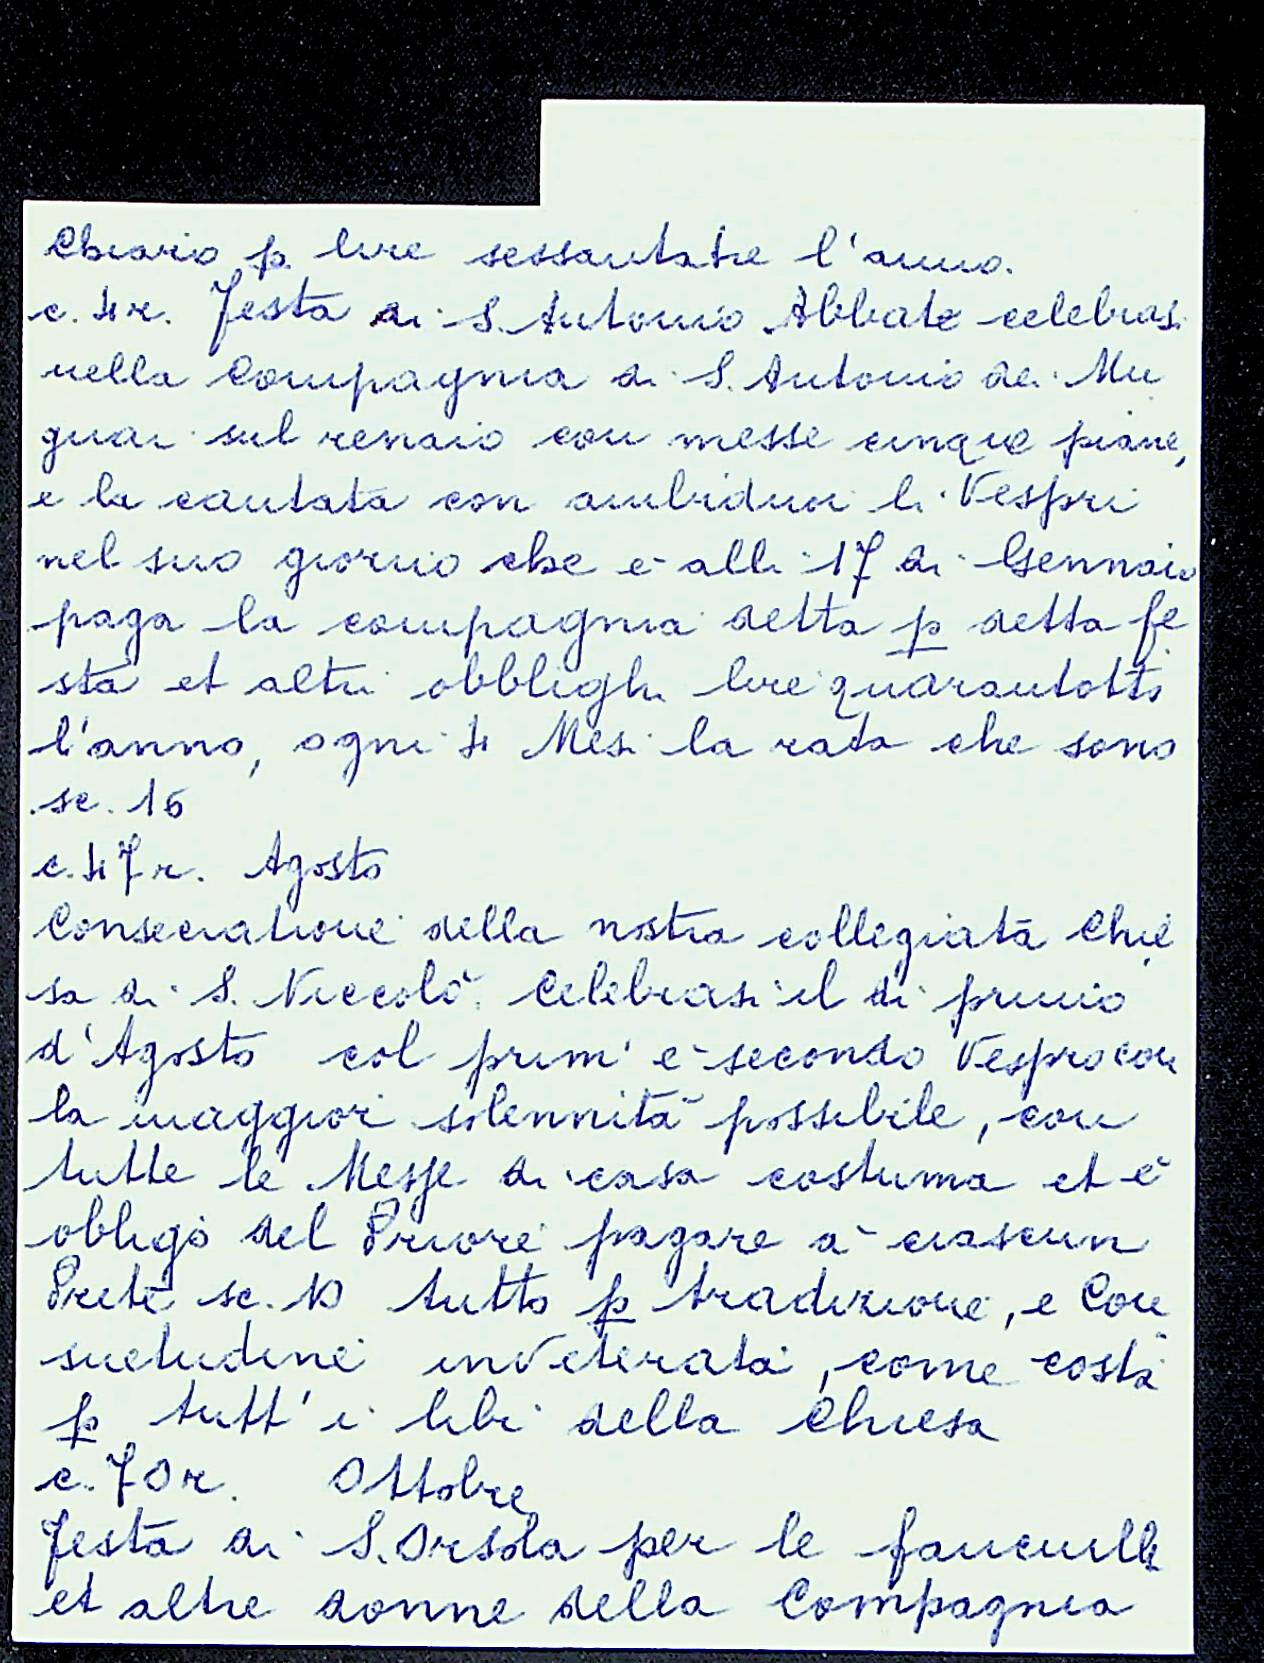 Chiario p. lire sessantatre l'anno.
c. 4r. Festa di S. Antonio Abbate celebrasi
nella Compagnia di S. Antonio de. Mu
gnai sul renaio con messe cinque piane,
e la cantata con ambiduoi li Vespri
nel suo giorno che è alli 17 di Gennaio
paga la compagnia detta p detta fe
sta et altri obblighi lire quarantotto
l'anno, ogni 4 Mesi la rata che sono
sc. 16
c. 47r. Agosto
Consecratione della nostra collegiata Chie
sa di S. Niccolò. Celebrasi il di primo
d'Agosto col prim' e secondo Vespro con
la maggior solennità possibile, con
tutte le Messe di casa costuma et è
obligo del Priore pagare à ciascun
Prete sc. 10 tutto p tradizione, e Con
suetudine inveterata, come costa
p tutt'i libi della Chiesa
c. 70r. Ottobre
Festa di S. Orsola per le fanciulle
et altre donne della Compagnia